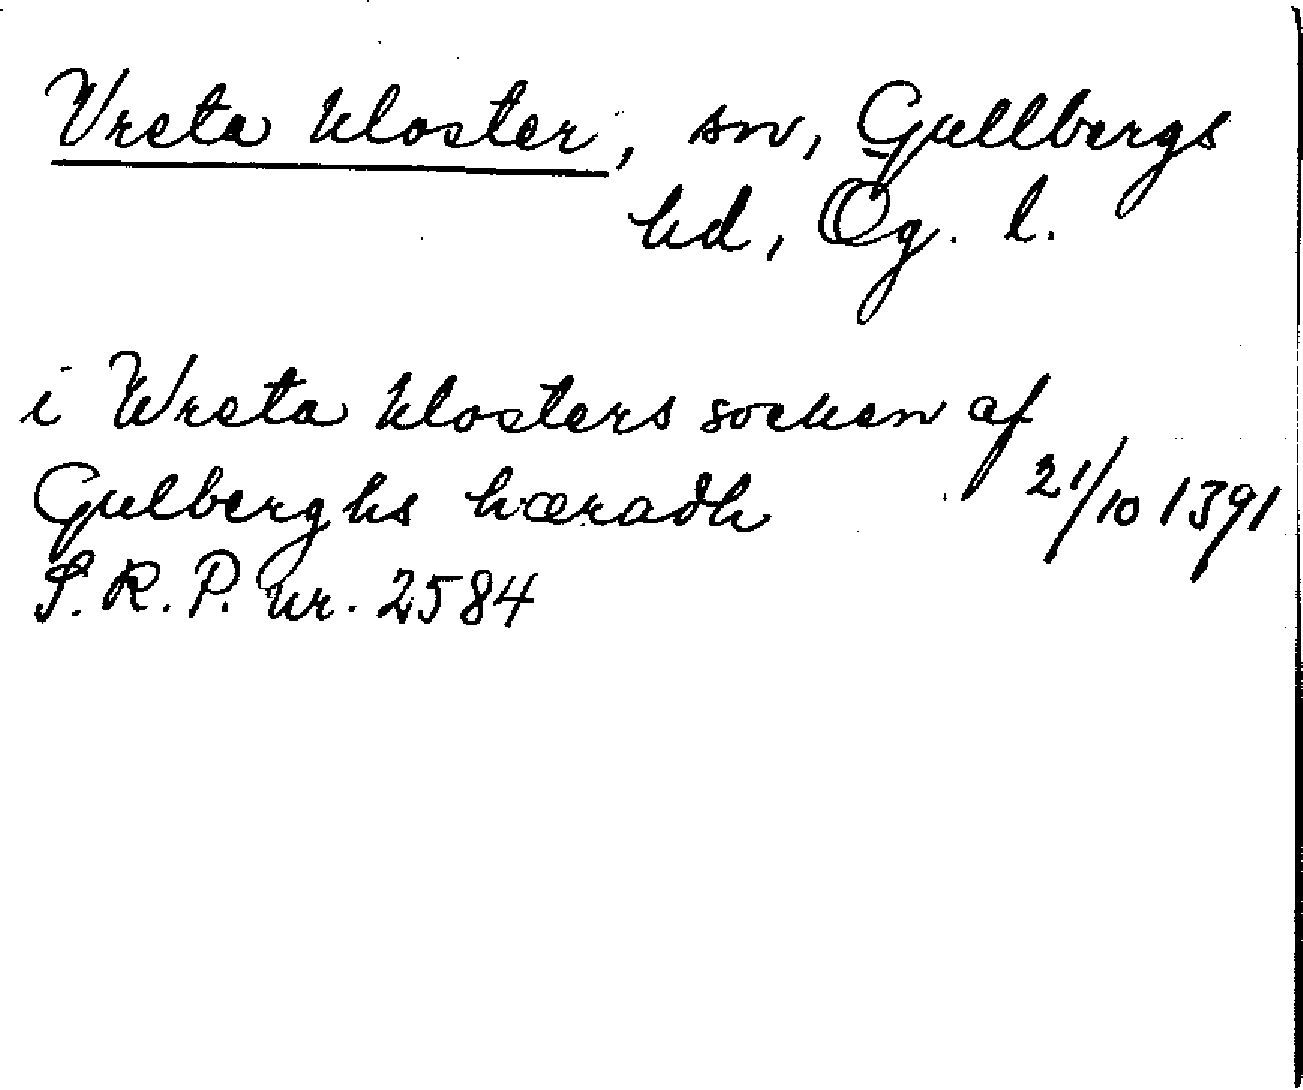 Vreta kloster, sn, Gullbergs
hd, Ög. l.
i Wreta klosters socken af
Gulberghs hæradh 21/10 1391
S.R.P. nr. 2584